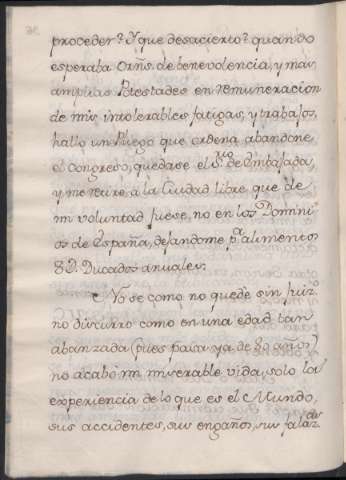 proceder? Y que desacierto? quando
esperaba Orñs. de benevolencia, y mas
amplias Potestades en remuneracion
de mis intolerables fatigas, y trabajos,
hallo un Pliego que ordena abandone
el Congreso, quedase el S.rio de Embajada,
y me retire á la Ciudad libre que de
mi voluntad fuese, no en los Domini-
os de España, dejandome p.a alimentos
8 D. Ducados anuales.
No se como no quedè sin juizio
no discurro como en una edad tan
abanzada (pues pasa ya de 80 años)
no acabó mi miserable vida, solo la
experiencia de lo que es el Mundo,
sus accidentes, sus engaños, sus falaz.des